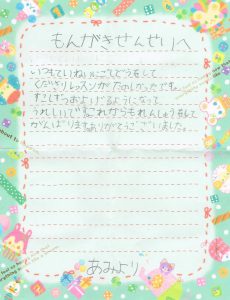 もんがきせんせいへ
いつもていねいにごしどうをして
くださりレッスンがたのしかったです。
すこしずつおよげるようになって
うれしいです。これからもれんしゅうをして
がんばります。ありがとうございました。
あみより